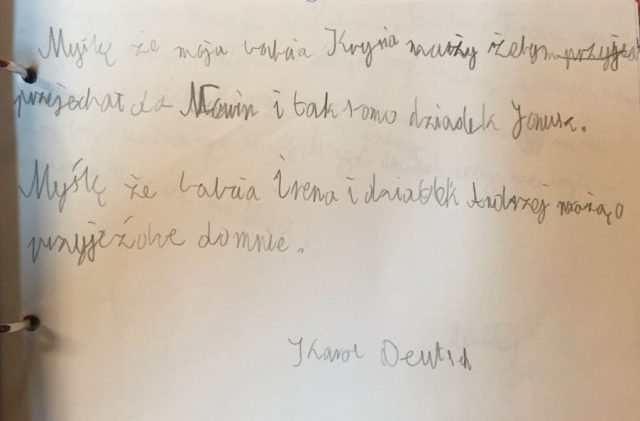 Myślę że moja babcia Krysia marzy żebym przyjechał
przejechał do Mławin i tak samo dziadek Janusz.
Myślę że babcia Irena i dziadek Andrzej marzą o
przyjeźdze do mnie.
Karol Deutsch